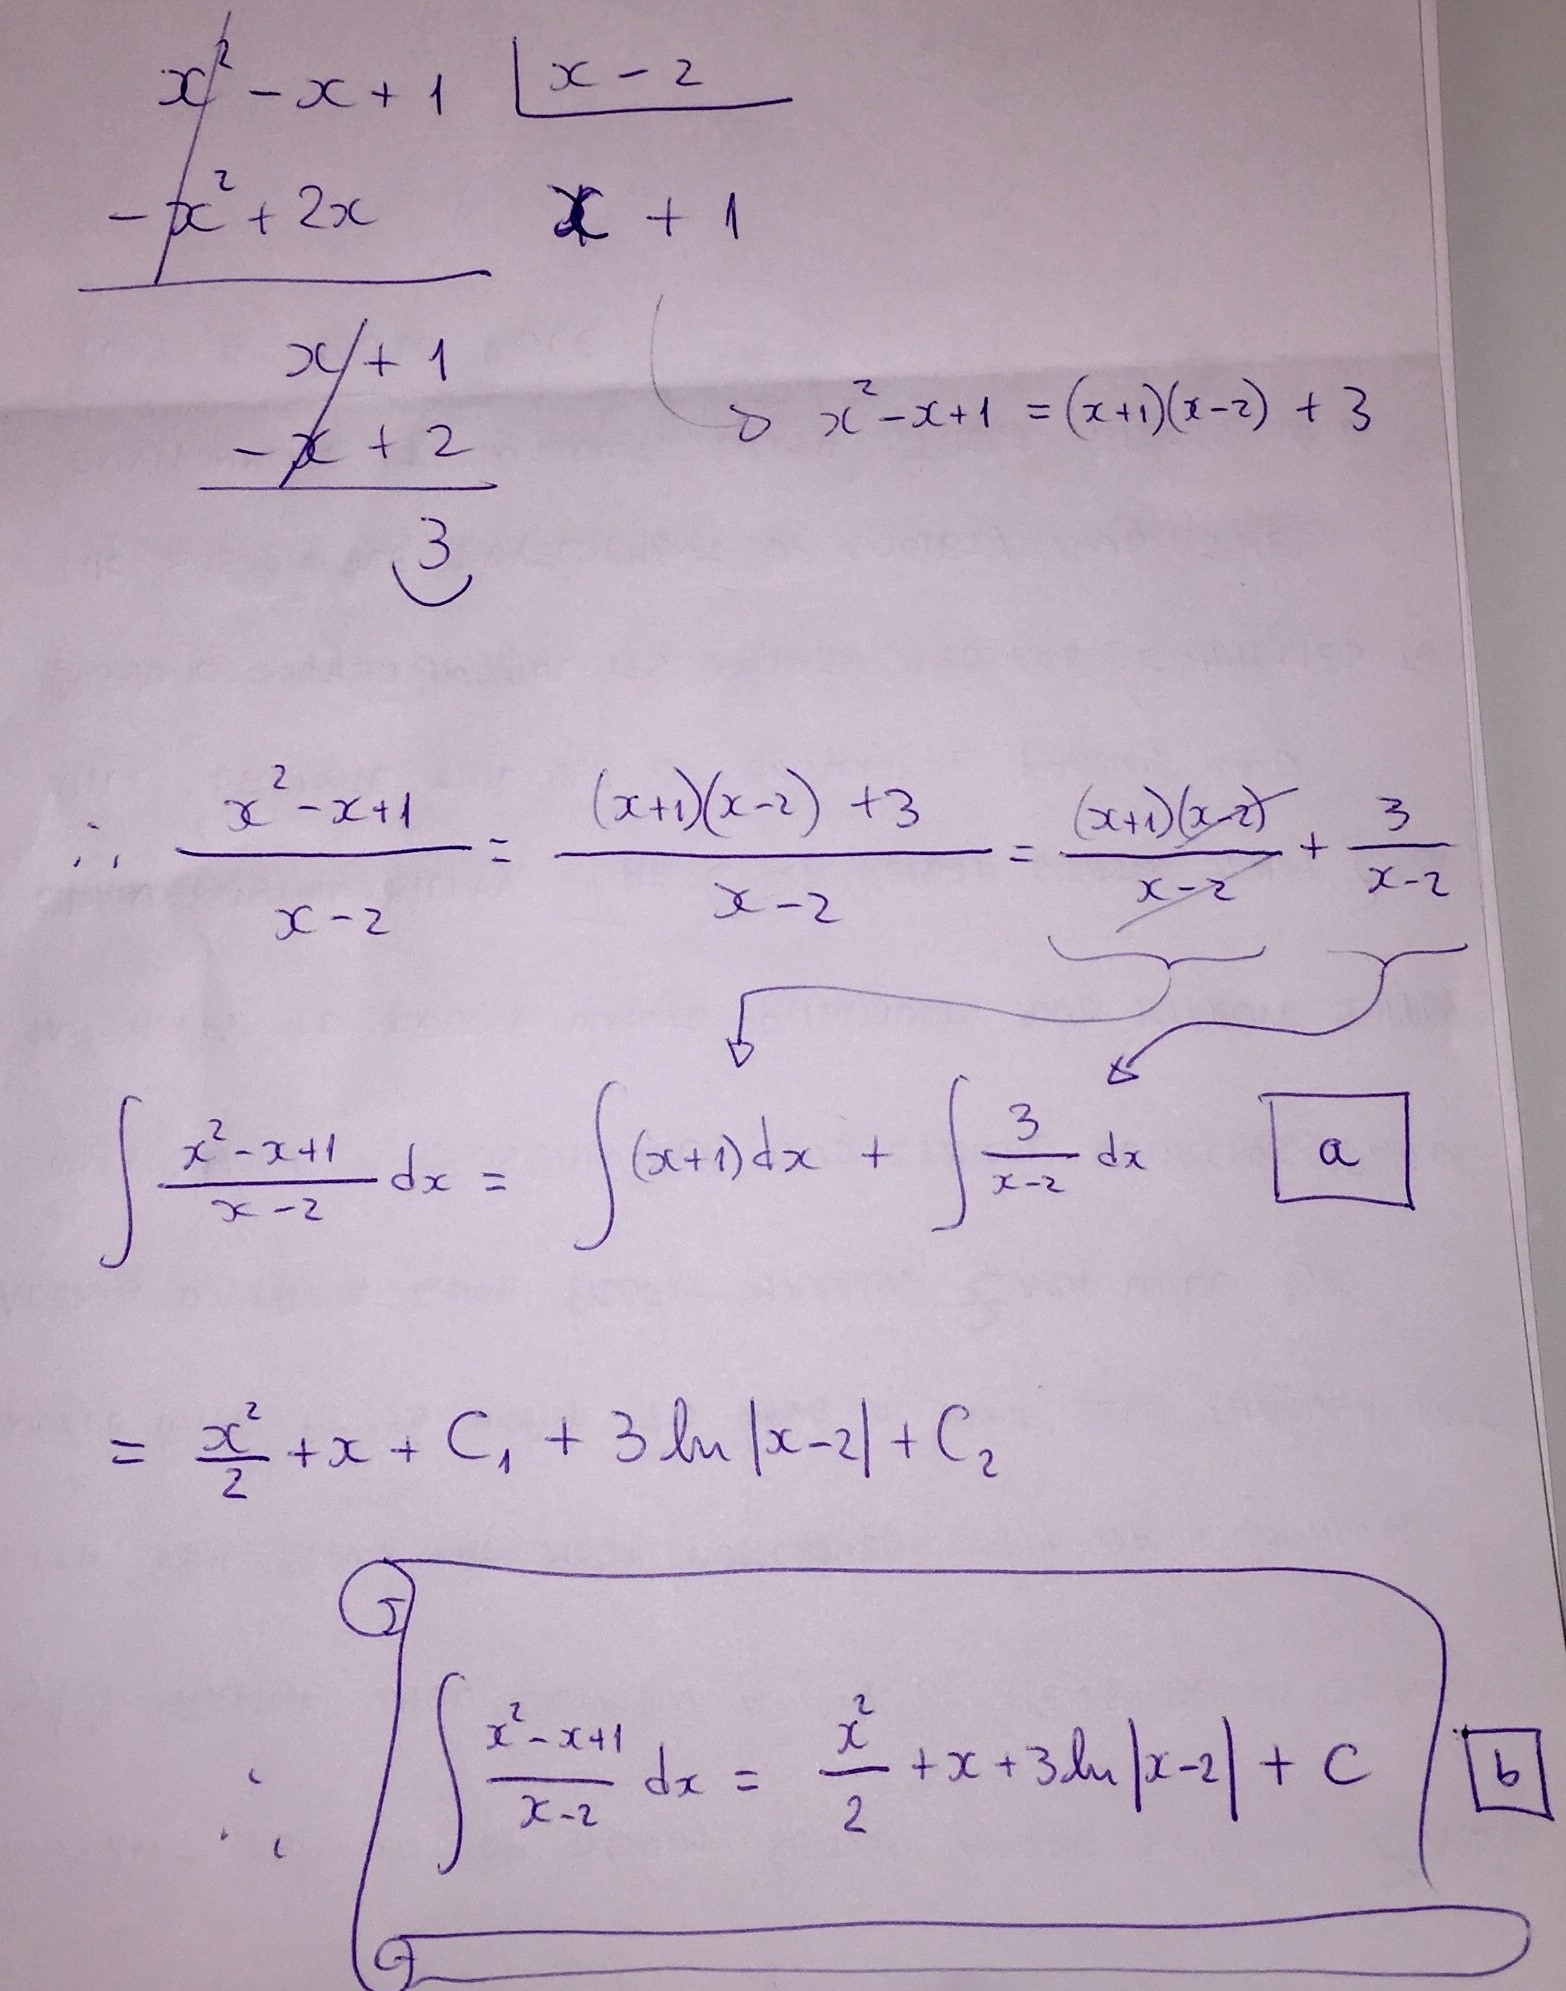 x² - x + 1 | x - 2
- x² + 2x x + 1
x + 1
x² - x + 1 = (x+1)(x-2) + 3
- x + 2
3
∴ (x² - x + 1)/(x - 2) = ((x+1)(x-2) + 3)/(x - 2) = ((x+1)(x-2))/(x-2) + 3/(x-2)
∫ (x² - x + 1)/(x - 2) dx = ∫ (x+1) dx + ∫ 3/(x-2) dx a
= x²/2 + x + C₁ + 3 ln |x-2| + C₂
∴ ∫ (x² - x + 1)/(x-2) dx = x²/2 + x + 3 ln |x-2| + C b